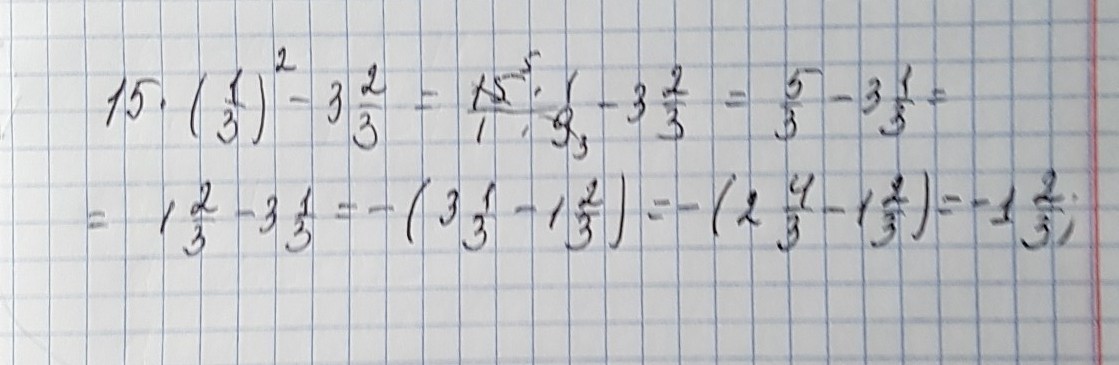 15 · (1/3)² - 3 2/3 = 15⁵ · 1 / 1 · 9₃ - 3 2/3 = 5/3 - 3 1/3 =
= 1 2/3 - 3 1/3 = -(3 1/3 - 1 2/3) = -(2 4/3 - 1 2/3) = -1 2/3;